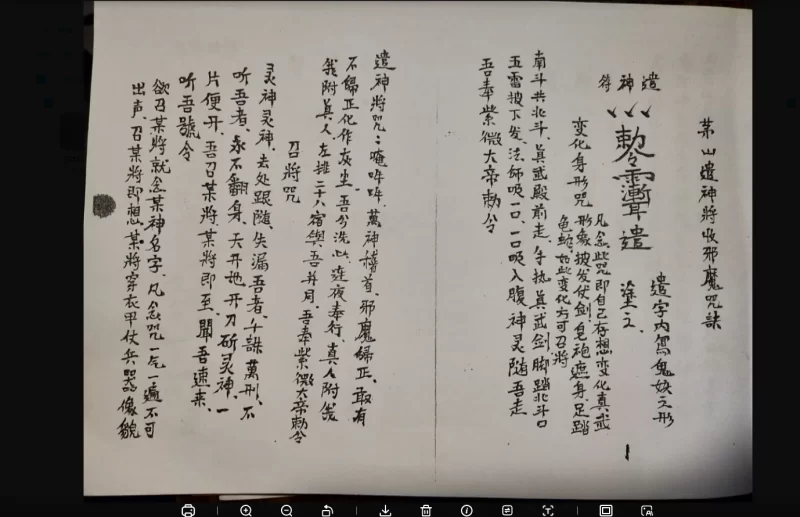 茅山遣神將收邪魔咒訣
遣神符
勅令 遣
遣字內寫鬼 之形
塗之
變化身形咒
凡念此咒即自己存想變化真武
形象披发仗剑皂袍遮身足踏
龜蛇如此变化方可召將
南斗共北斗、真武殿前走、手执真武剑脚踏北斗口
五雷披下发、法師吸一口、一口吸入腹神灵随吾走
吾奉紫微大帝勅令
遣神將咒：唵吽吽、萬神稽首、邪魔歸正、敢有
不歸正化作灰尘、吾分洗 連夜奉行、真人附我
我附真人、左排二十八宿與吾并同、吾奉紫微大帝勅令
召將咒
灵神灵神、去处跟随、失漏吾者、千誅萬刑、不
听吾者、永不翻身、天开地开刀斫灵神、一
片便开、吾召某將、某將即至、聞吾速来、
听吾號令
欲召某將就念某神名字、凡念咒一气一遍不可
出声、召某將即想某將穿衣甲仗兵器像貌